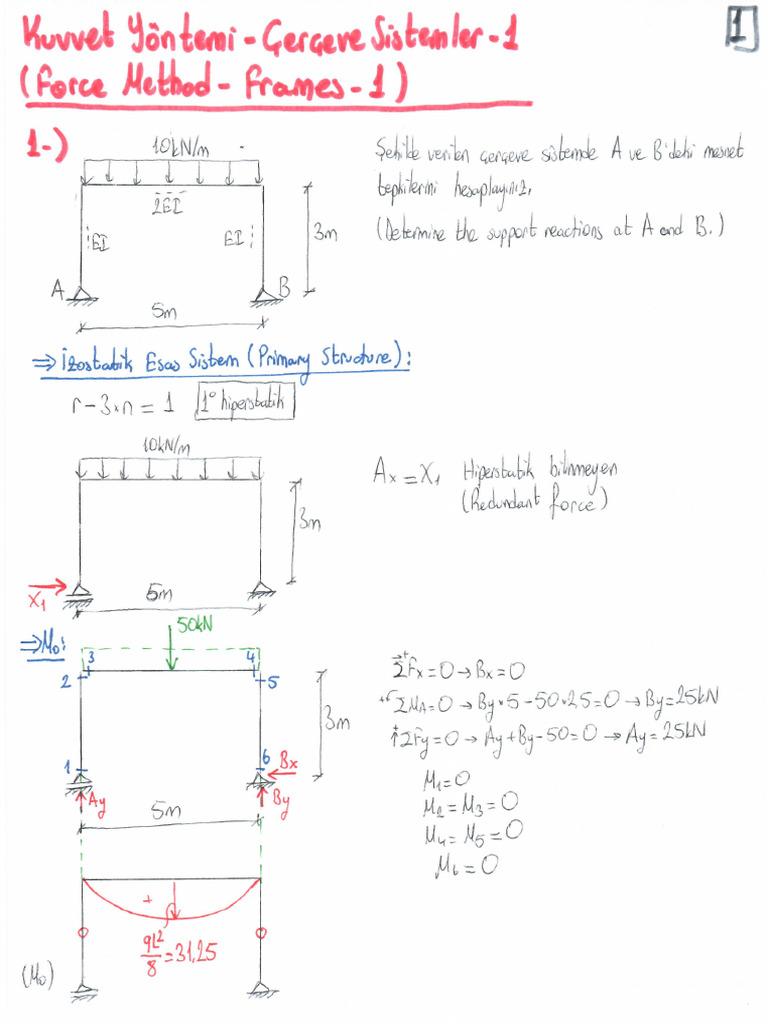 Kuvvet Yöntemi - Çerçeve Sistemler - 1
1
(Force Method - Frames - 1)
1-)
10kN/m
Şekilde verilen çerçeve sistemde A ve B'deki mesnet
tepkilerini hesaplayınız.
(Determine the support reactions at A and B.)
2EI
EI
EI
3m
A
B
5m
⇒ İzostatik Esas Sistem (Primary Structure):
r-3×n = 1 1° hiperstatik
10kN/m
Ax = X1 Hiperstatik bilinmeyen
(Redundant force)
3m
X1
5m
50kN
⇒ M0:
3
4
2
5
3m
1
6
Bx
Ay
By
5m
→+ ΣFx = 0 → Bx = 0
+↶ ΣMA = 0 → By×5 - 50×2.5 = 0 → By = 25kN
+↑ ΣFy = 0 → Ay + By - 50 = 0 → Ay = 25kN
M1 = 0
M2 = M3 = 0
M4 = M5 = 0
M6 = 0
+
qL²/8 = 31,25
(M0)